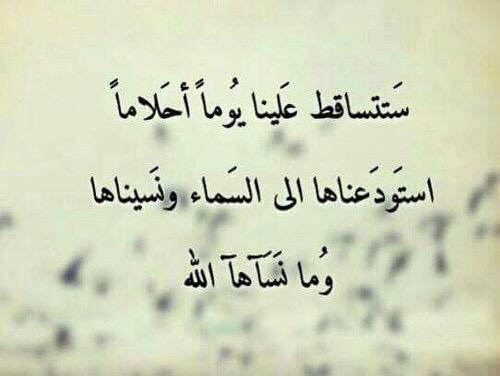 سَتتساقط عَلينا يُوماً أحَلاماً
استَودَعناها الى السَماء ونَسيناها
وُما نَسَآهآ الله